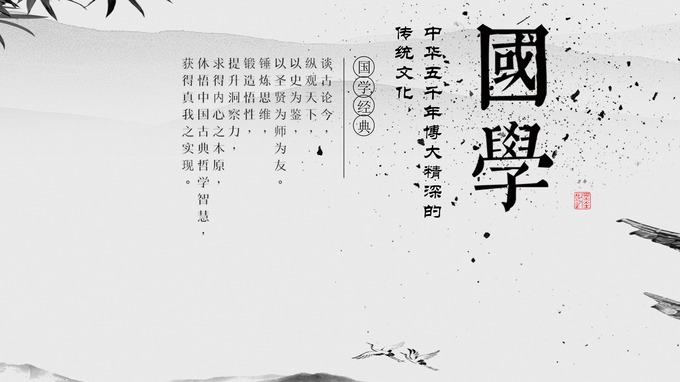 國學
中华五千年博大精深的
传统文化
国学经典
谈古论今，
纵观天下，
以史为鉴，
以圣贤为师为友。
锤炼思维，
锻造悟性，
提升洞察力，
求得内心之本原，
体悟中国古典哲学智慧，
获得真我之实现。